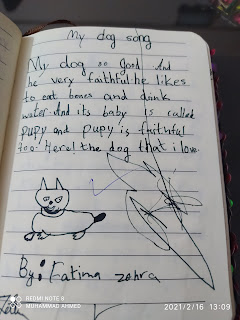 My dog song
My dog so Good. And
he very faithful he likes
to eat bones and drink
water. And its baby is called
pupy and pupy is faithful
too. Here! the dog that i love.
By: Fatima zohra
REDMI NOTE 8
MUHAMMAD AHMED
2021/2/16 13:09